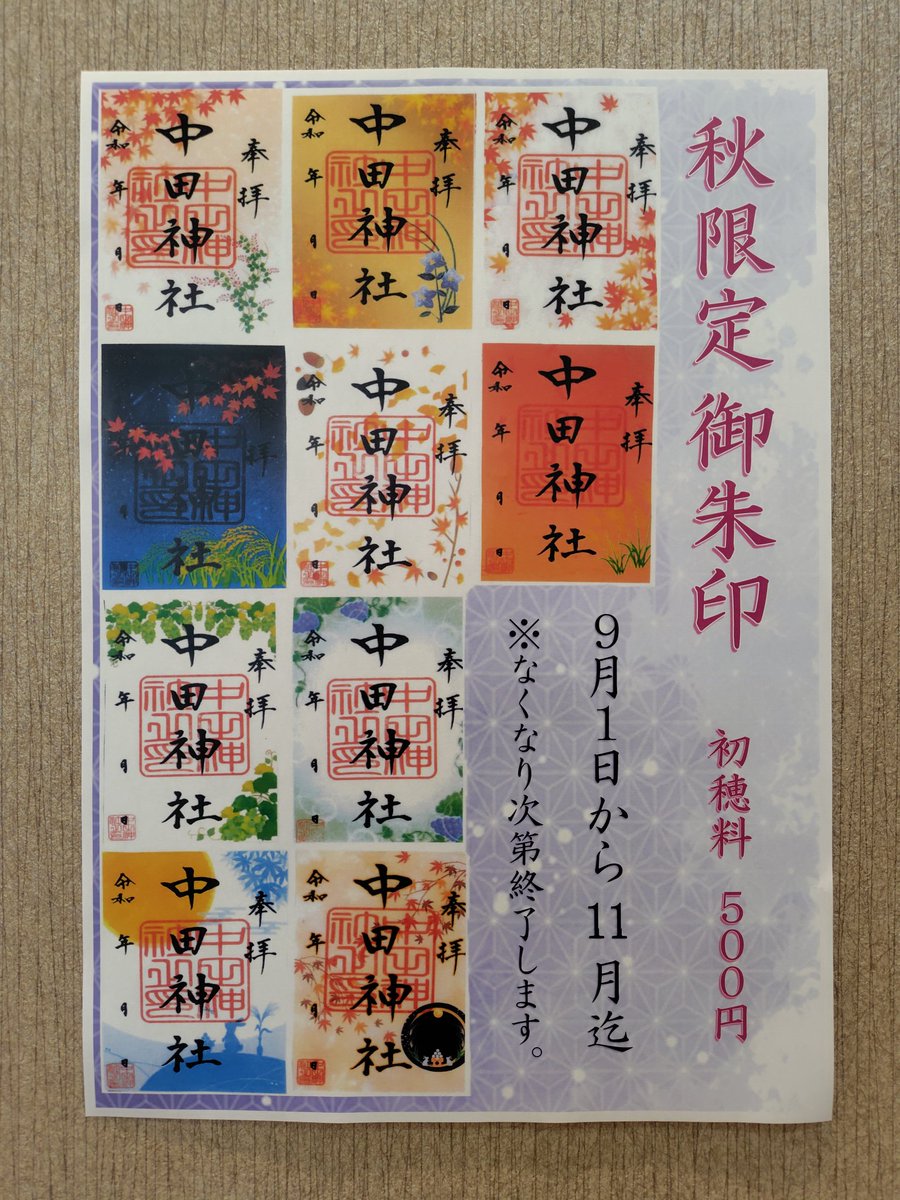 秋限定御朱印
初穂料 500円
9月1日から11月迄
※なくなり次第終了します。
奉拝
中田神社
令和 年 月 日
奉拝
中田神社
令和 年 月 日
奉拝
中田神社
令和 年 月 日
奉拝
中田神社
月
奉拝
中田神社
令和 年 月 日
奉拝
中田神社
令和 年 月 日
奉拝
中田神社
令和 年 月 日
奉拝
中田神社
令和 年 月 日
奉拝
中田神社
令和 年 月 日
奉拝
中田神社
令和 年 月 日